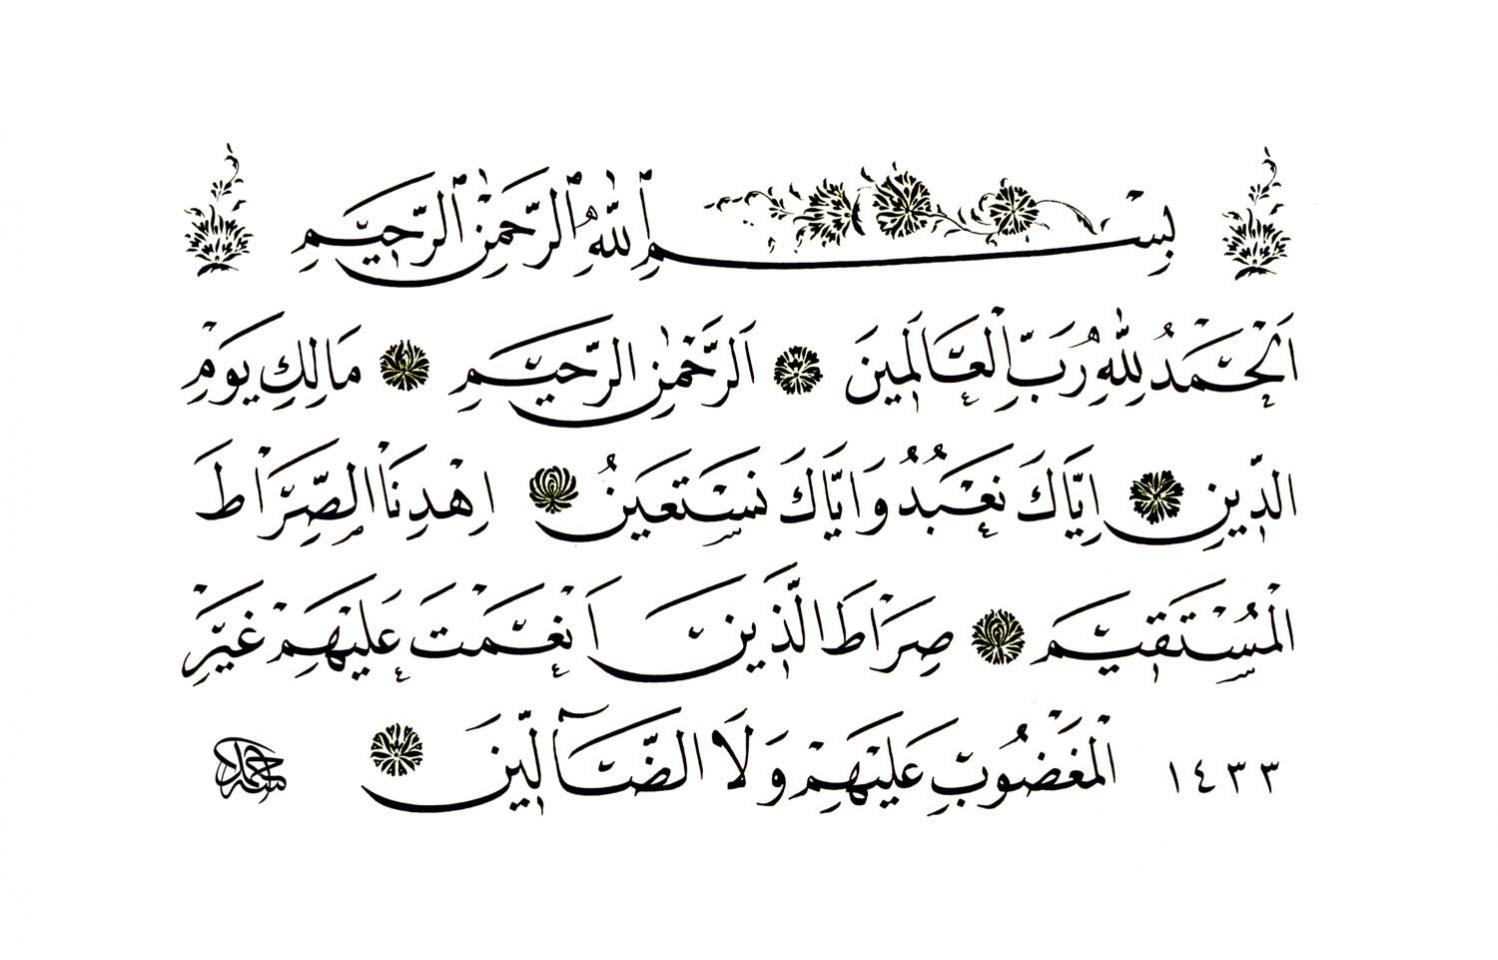 بِسْمِ ٱللّٰهِ ٱلرَّحْمٰنِ ٱلرَّحِيمِ
اَلْحَمْدُ لِلّٰهِ رَبِّ الْعَالَمِينَ اَلرَّحْمٰنِ الرَّحِيمِ مَالِكِ يَوْمِ
الدِّينِ اِيَّاكَ نَعْبُدُ وَاِيَّاكَ نَسْتَعِينُ اِهْدِنَا الصِّرَاطَ
الْمُسْتَقِيمَ صِرَاطَ الَّذِينَ اَنْعَمْتَ عَلَيْهِمْ غَيْرِ
الْمَغْضُوبِ عَلَيْهِمْ وَلَا الضَّٓالِّينَ
١٤٣٣